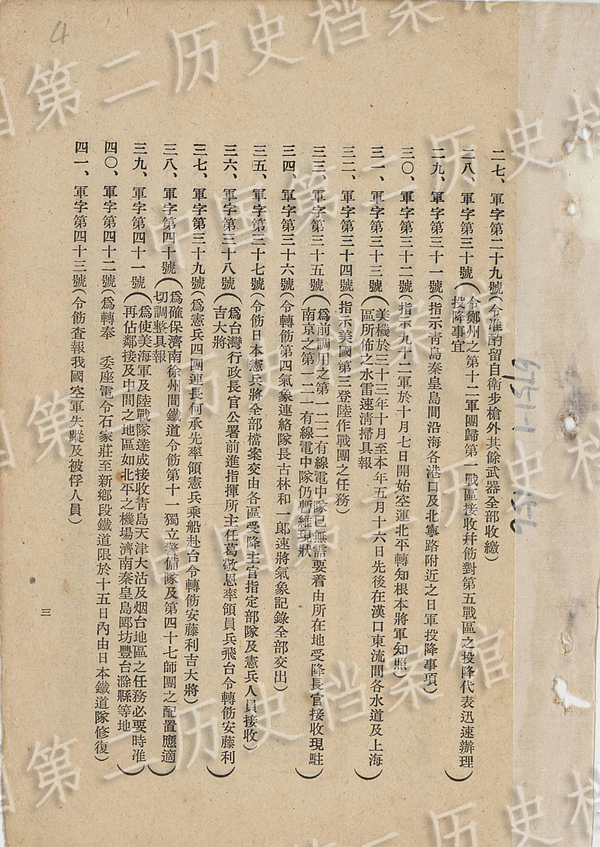 4
二七、軍字第二十九號(令准酌留自衛步槍外其餘武器全部收繳)
二八、軍字第三十號(令鄭州之第十二軍團歸第一戰區接收幷飭對第五戰區之投降代表迅速辦理
投降事宜)
二九、軍字第三十一號(指示靑島秦皇島間沿海各港口及北寧路附近之日軍投降事項)
三〇、軍字第三十二號(指示九十二軍於十月七日開始空運北平轉知根本將軍知照)
三一、軍字第三十三號(美機於三十三年十月至本年五月十六日先後在漢口東流間各水道及上海
區所佈之水雷速淸掃具報)
三二、軍字第三十四號(指示美國第三登陸作戰團之任務)
三三、軍字第三十五號(爲前調用之第一二二有線電中隊已無需要着由所在地受降長官接收現駐
南京之第一二一有線電中隊仍暫維現狀)
三四、軍字第三十六號(令轉飭第四氣象連絡隊長古林和一郞速將氣象記錄全部交出)
三五、軍字第三十七號(令飭日本憲兵將全部檔案交由各區受降主官指定部隊及憲兵人員接收)
三六、軍字第三十八號(爲台灣行政長官公署前進指揮所主任葛敬恩率領員兵飛台令轉飭安藤利
吉大將)
三七、軍字第三十九號(爲憲兵四團連長何承先率領憲兵乘船赴台令轉飭安藤利吉大將)
三八、軍字第四十號(爲確保濟南徐州間鐵道令飭第十一獨立警備隊及第四十七師團之配置應適
切調整具報)
三九、軍字第四十一號(爲使美海軍及陸戰隊達成接收靑島天津大沽及烟台地區之任務必要時准
再佔鄰接及中間之地區如北平之機場濟南秦皇島郞坊豐台滁縣等地)
四〇、軍字第四十二號(爲轉奉　委座電令石家莊至新鄉段鐵道限於十五日內由日本鐵道隊修復)
四一、軍字第四十三號(令飭查報我國空軍失踪及被俘人員)
三
中国第二历史档案馆